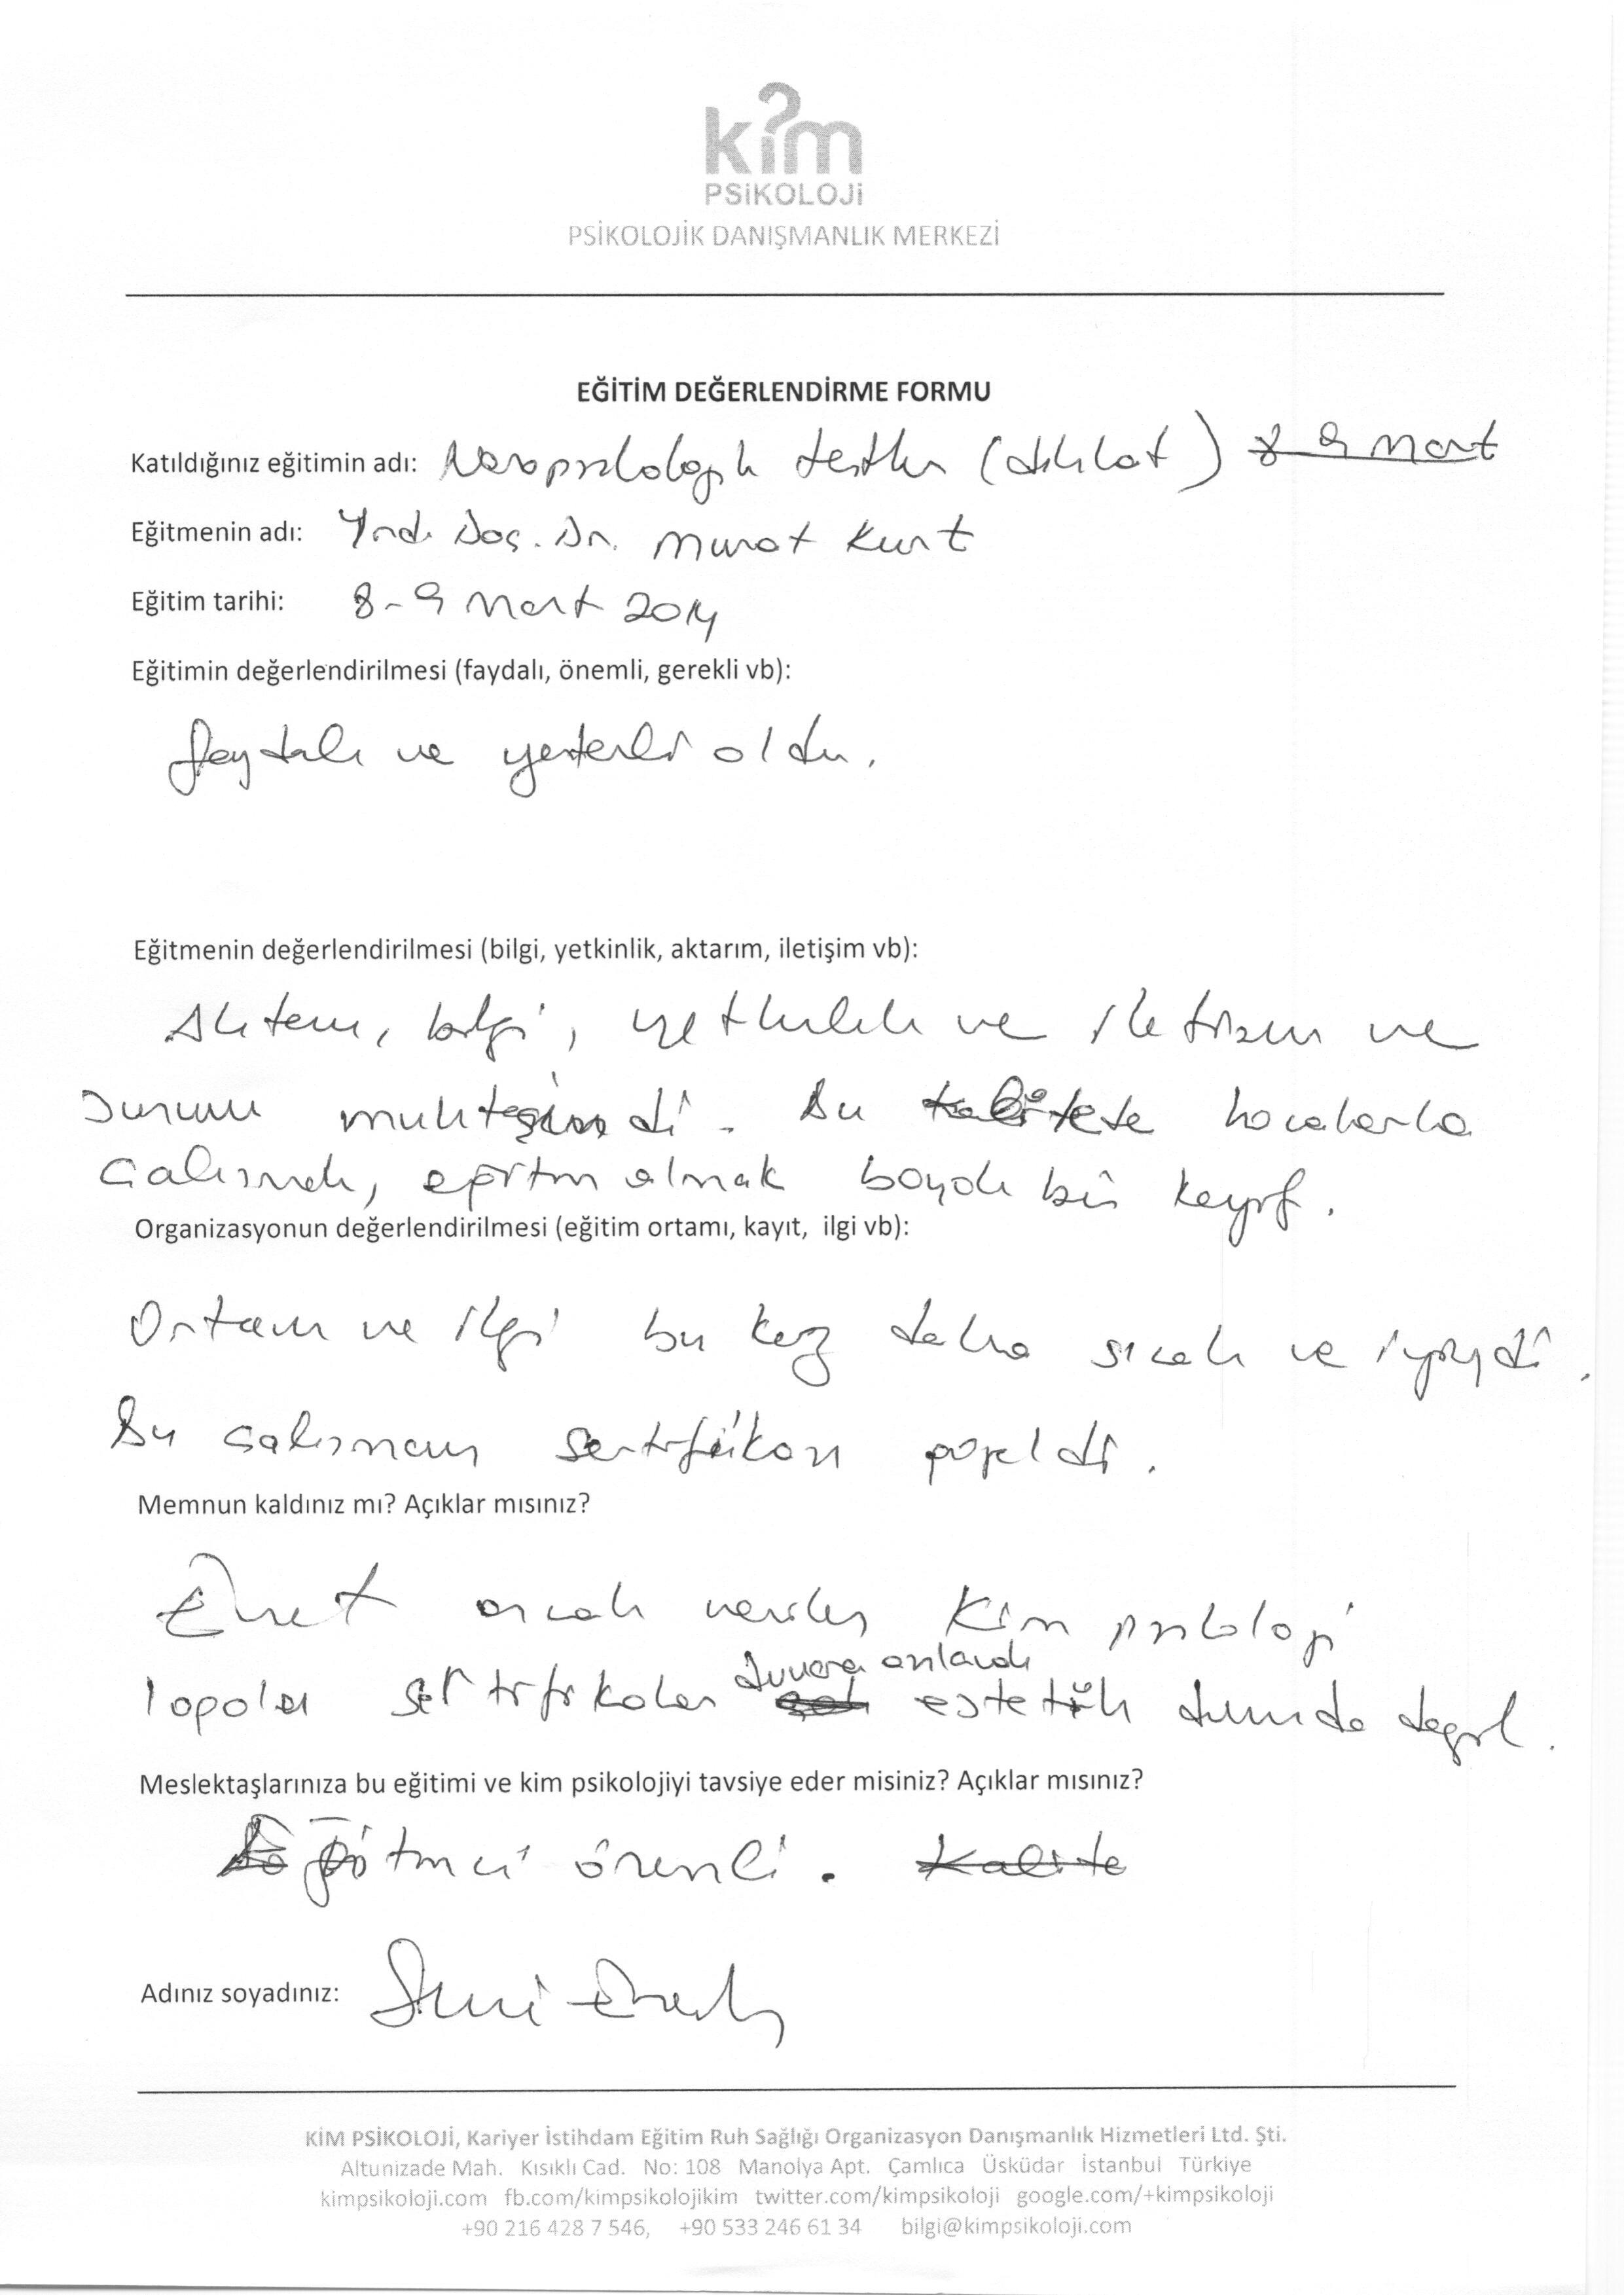 kim
PSİKOLOJİ
PSİKOLOJİK DANIŞMANLIK MERKEZİ
EĞİTİM DEĞERLENDİRME FORMU
Katıldığınız eğitimin adı: Nöropsikolojik testler (dikkat) 8 9 Mart
Eğitmenin adı: Yrd. Doç. Dr. Murat Kurt
Eğitim tarihi: 8-9 Mart 2014
Eğitimin değerlendirilmesi (faydalı, önemli, gerekli vb):
faydalı ve yeterli oldu.
Eğitmenin değerlendirilmesi (bilgi, yetkinlik, aktarım, iletişim vb):
Aktarım, bilgi, yetkinlik ve iletişim ve
sunum muhteşemdi. Bu kalitete hocalarla
çalışmak, eğitim almak büyük bir keyif.
Organizasyonun değerlendirilmesi (eğitim ortamı, kayıt, ilgi vb):
Ortam ve ilgi bu kez daha sıcak ve iyiydi.
Bu çalışmanın sertifikası güzeldi.
Memnun kaldınız mı? Açıklar mısınız?
Evet ancak verilen Kim psikoloji
logolu sertifikalar duvara asılacak estetik durumda değil.
Meslektaşlarınıza bu eğitimi ve kim psikolojiyi tavsiye eder misiniz? Açıklar mısınız?
Eğitmci önemli. Kalite
Adınız soyadınız:
KİM PSİKOLOJİ, Kariyer İstihdam Eğitim Ruh Sağlığı Organizasyon Danışmanlık Hizmetleri Ltd. Şti.
Altunizade Mah. Kısıklı Cad. No: 108 Manolya Apt. Çamlıca Üsküdar İstanbul Türkiye
kimpsikoloji.com fb.com/kimpsikolojikim twitter.com/kimpsikoloji google.com/+kimpsikoloji
+90 216 428 7 546, +90 533 246 61 34 bilgi@kimpsikoloji.com